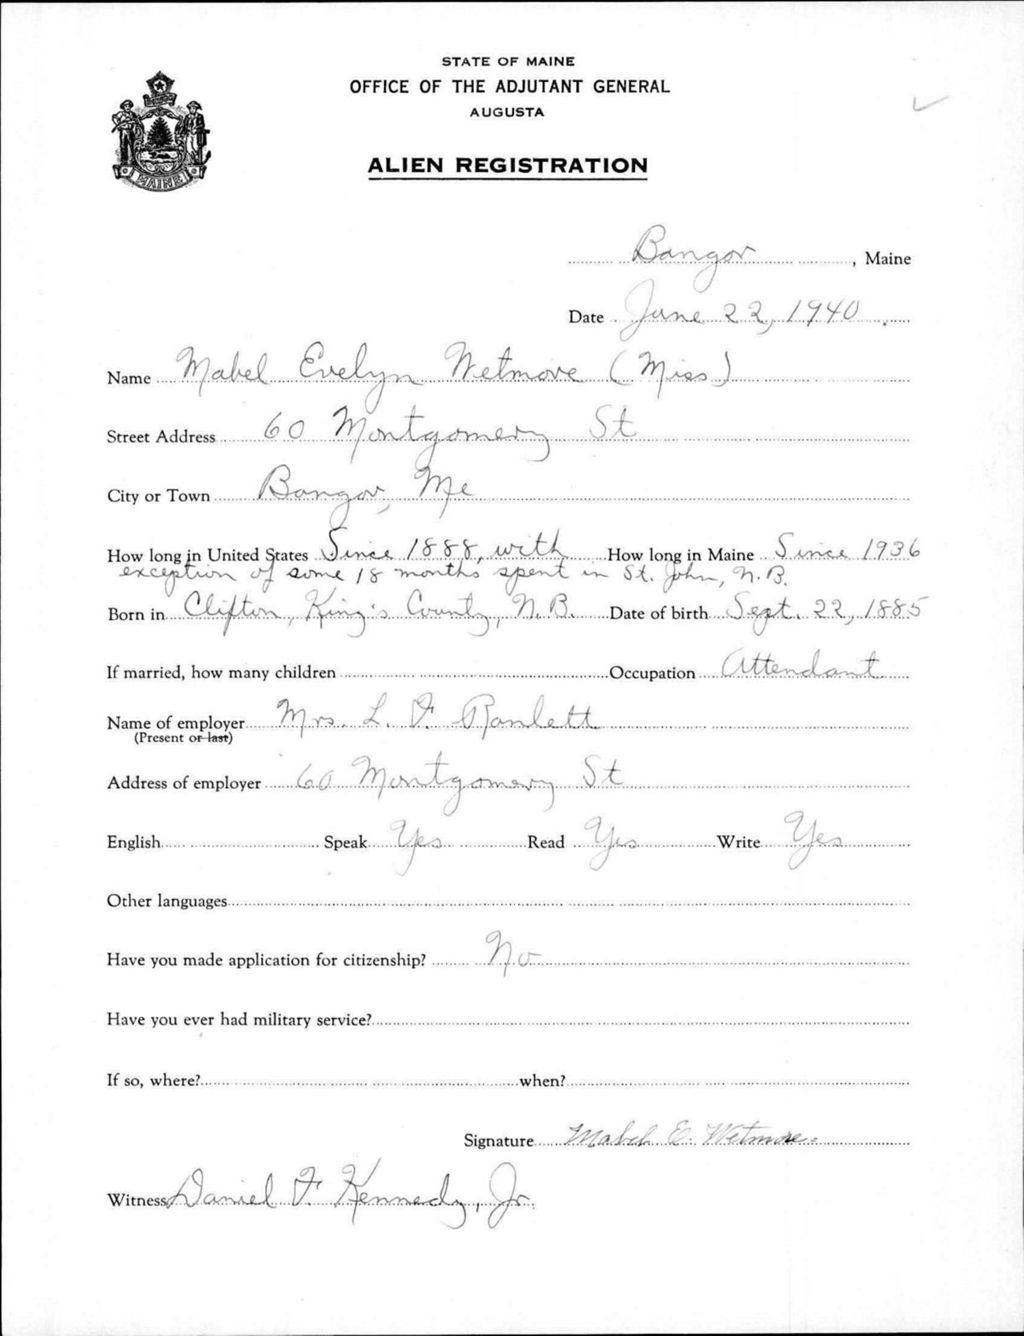 STATE OF MAINE
OFFICE OF THE ADJUTANT GENERAL
AUGUSTA
ALIEN REGISTRATION
MAINE
Bangor, Maine
Date June 22, 1940
Name Mabel Evelyn Wetmore (Miss)
Street Address 60 Montgomery St
City or Town Bangor, Me
How long in United States Since 1888, with How long in Maine Since 1936
exception of some 18 months spent in St. John, N.B.
Born in Clifton, King's County, N.B. Date of birth Sept. 22, 1885
If married, how many children Occupation Attendant
Name of employer Mrs. L. F. Ranlett
(Present or last)
Address of employer 60 Montgomery St
English Speak Yes Read Yes Write Yes
Other languages
Have you made application for citizenship? No
Have you ever had military service?
If so, where? when?
Signature Mabel E. Wetmore
Witness Daniel F. Kennedy, Jr.